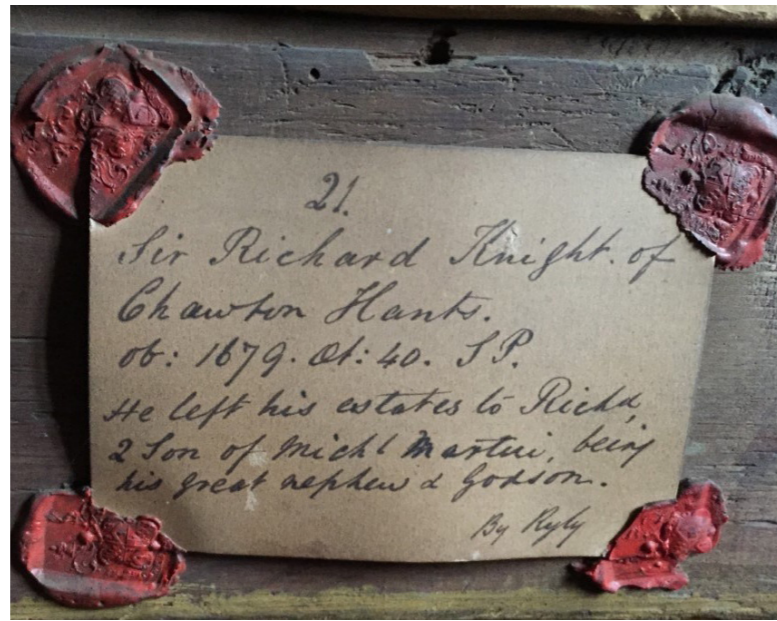 21.
Sir Richard Knight. of
Chawton Hants.
ob: 1679. Æt: 40. S P.
He left his estates to Richd,
2 Son of Michl Martin, being
his great nephew & Godson.
By Ryly